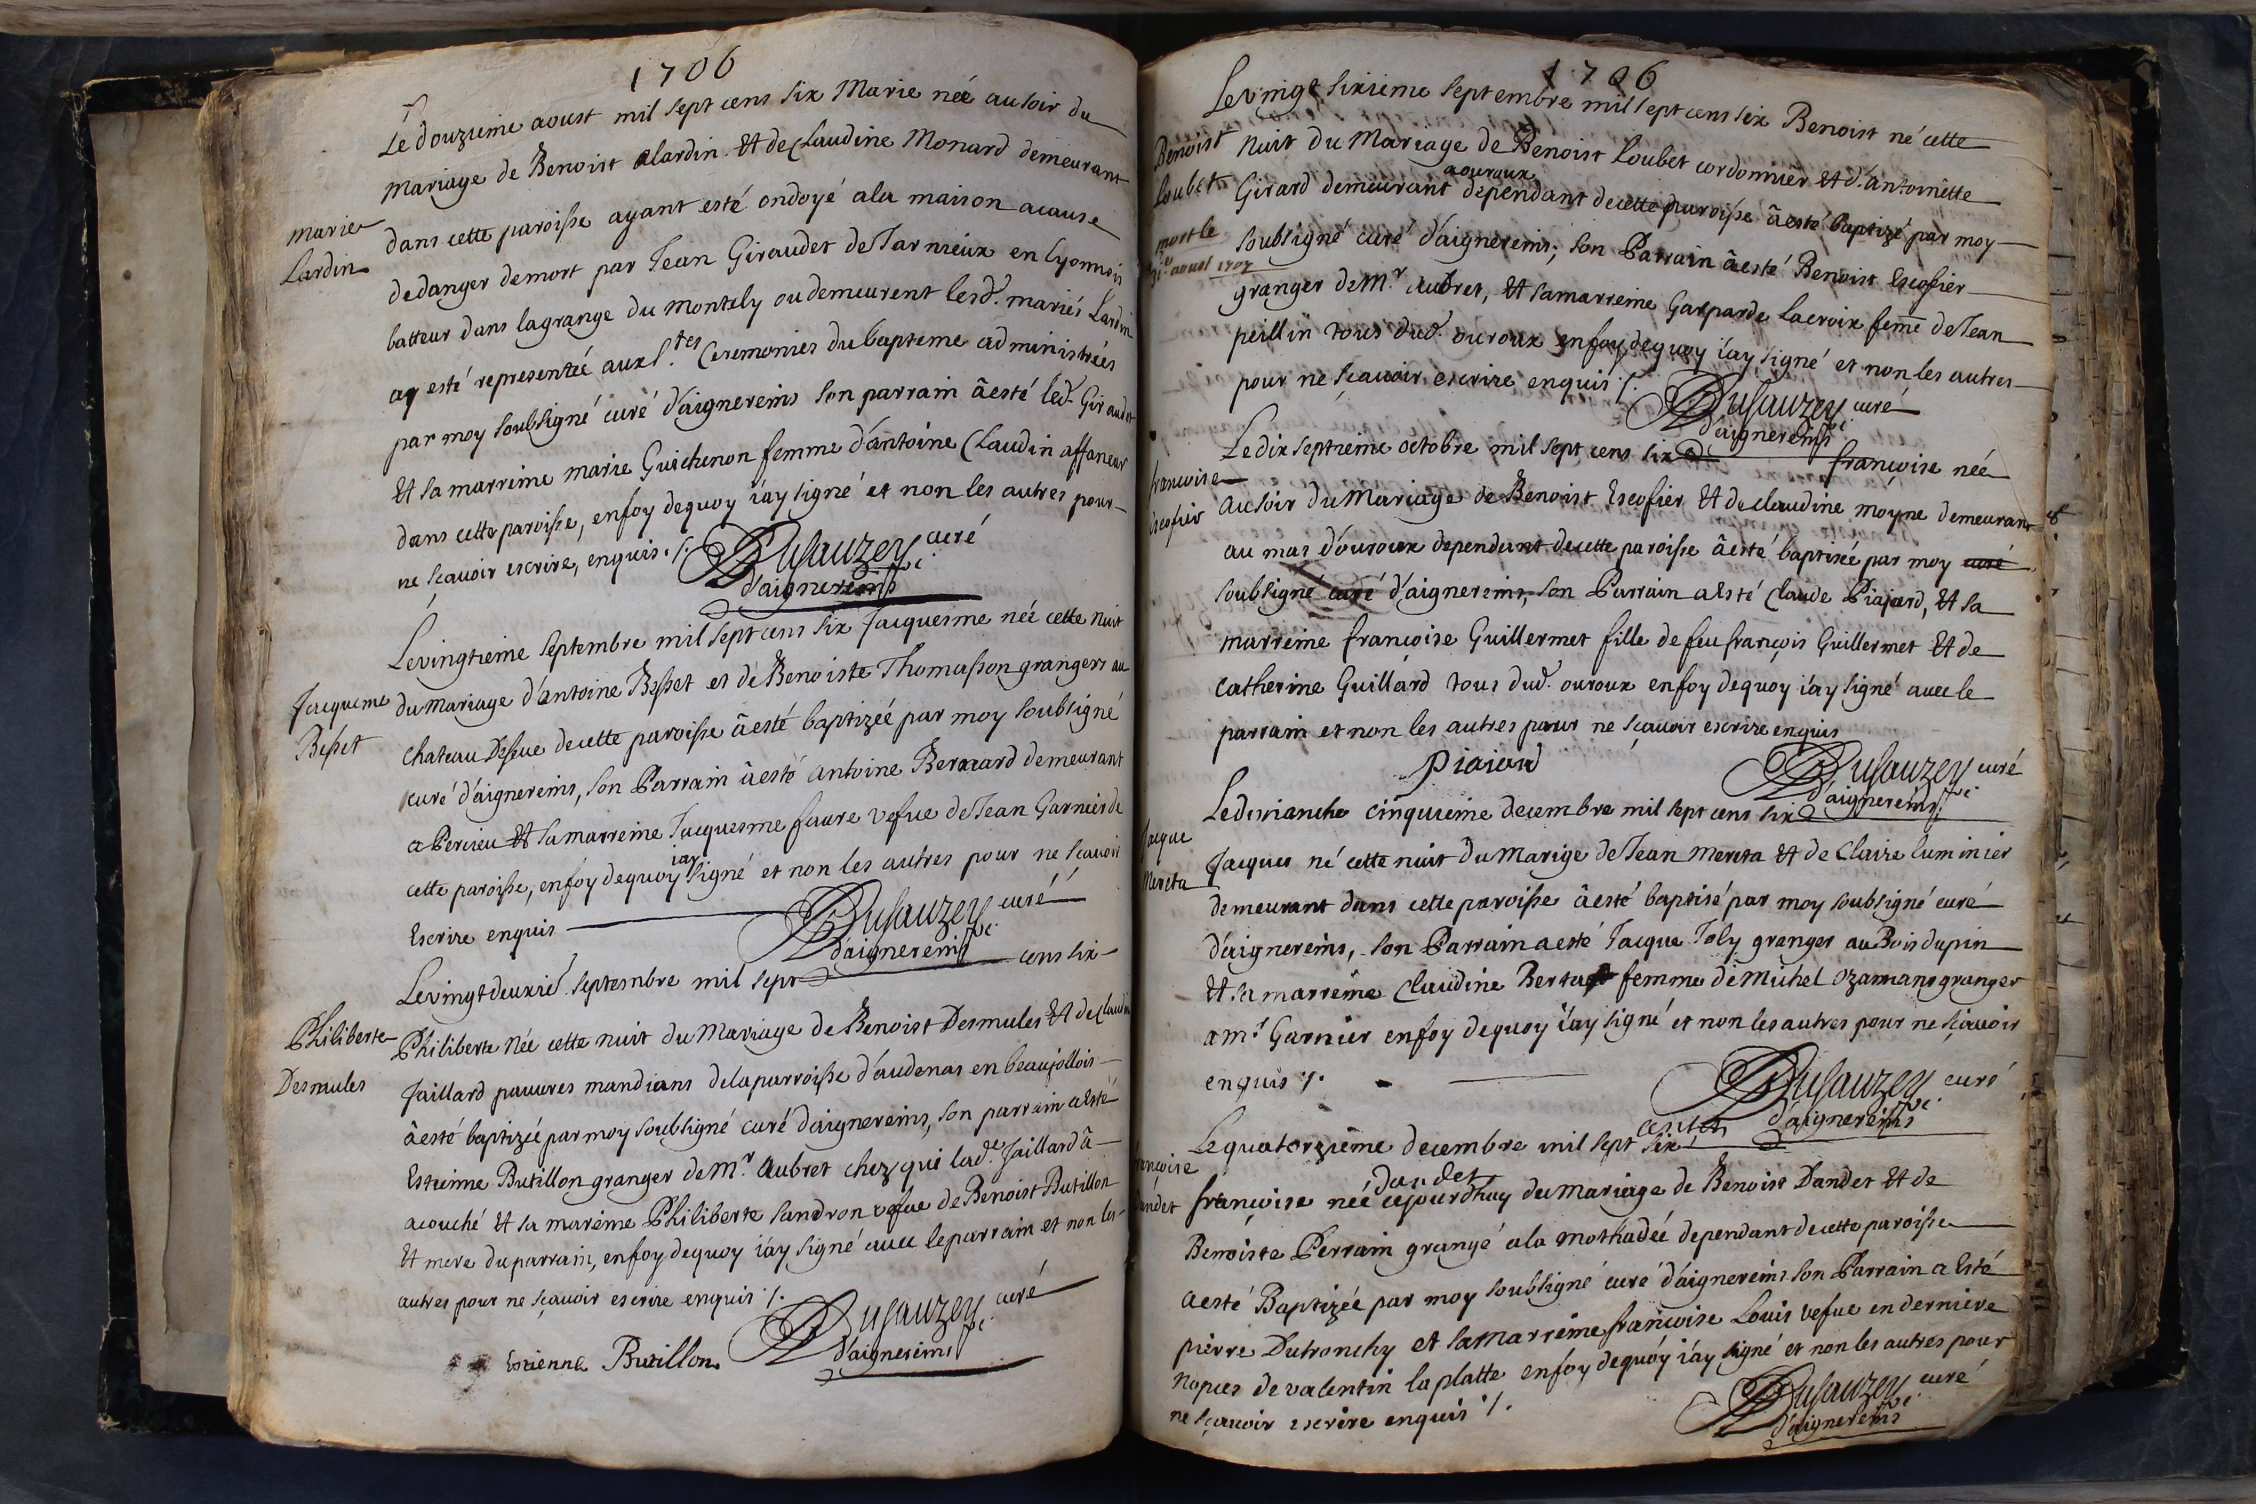 1706
Le douzieme aoust mil sept cens six Marie née au soir du
mariage de Benoist alardin Et de Claudine Monard demeurant
marie
Lardin
dans cette paroisse ayant esté ondoyé ala maison acause
dedanger demort par Jean Giraudet de Jarnieux en Lyonnois
batteur dans lagrange du montely ou demeurent lesd. mariés Lardin
ay esté representéé aux s.tes Ceremonies du bapteme administrées
par moy soubsigné curé d'aignereins son parrain â esté led. Giraudet
Et sa marreine marie Guichenon femme d'antoine Claudin affaneur
dans cette paroisse, enfoy dequoy i'ay signé et non les autres pour
ne sçauoir escrire, enquis ./.
Dusauzey curé
d'aignereins
Le vingtieme septembre mil sept cens six Jacquesme née cette nuit
Jacqueme
Besset
du mariage d'antoine Besset et de Benoiste Thomasson grangers au
chateau Dessue de cette paroisse â esté baptizéé par moy soubsigné
curé d'aignereins, son Parrain â esté antoine Bernard demeurant
a Percieu Et sa marreine Jacquesme faure vefue de Jean Garnier de
cette paroisse, enfoy dequoy i'ay signé et non les autres pour ne sçauoir
Escrire enquis
Dusauzey curé
d'aignereins
Le vingt deuxie. septembre mil sept cens six
Philiberte
Desmules
Philiberte Née cette nuit du Mariage de Benoist Desmules Et de Claudine
Jaillard pauures mandians de la parroisse d'audenas en beaujollois
â esté baptizéé par moy soubsigné curé d'aignereins, son parrain a Esté
Estienne Butillon granger de Mr. Aubret chez qui lad.e Jaillard â
acouché Et sa mareme Philiberte Sandron vefue de Benoist Butillon
Et mere du parrain, enfoy dequoy i'ay signé auec le parrain et non les
autres pour ne sçauoir escrire enquis ./.
Dusauzey curé
d'aignereins
Estienne Butillon
1706
Le vingt sixieme septembre mil sept cens six Benoist né cette
Benoist
Loubet
mort le
aoust 1707
Nuit du Mariage de Benoist Loubet cordonnier Et d'antoinette
aouroux
Girard demeurant dependant de cette paroisse â esté baptizé par moy
soubsigné curé d'aignereins, son Parrain â esté Benoist Escofier
granger de Mr. Aubret, Et sa marreine Gasparde Lacroix feme de Jean
peillin tous dud. ouroux enfoy dequoy i'ay signé et non les autres
pour ne sçauoir escrire enquis ./.
Dusauzey curé
d'aignereins
Le dix septieme octobre mil sept cens six françoise née
françoise
Escofier
au soir du Mariage de Benoist Escofier Et de claudine moyne demeurant
au mas d'ouroux dependant de cette paroisse â esté baptisée par moy curé
soubsigné curé d'aignereins, son Parrain a Esté Claude Piajard, Et sa
marreine françoise Guillermet fille de feu françois Guillermet Et de
Catherine Guillard tous dud. ouroux enfoy dequoy i'ay signé auec le
parrain et non les autres pour ne sçauoir escrire enquis
Piaiard
Dusauzey curé
d'aignereins
Le dimanche cinquieme decembre mil sept cens six
Jacque
Mereta
Jacques né cette nuit du Marige de Jean Mereta Et de Claire luminier
demeurant dans cette paroisse â esté baptisé par moy soubsigné curé
d'aignereins, son Parrain a esté Jacque Joly granger au Bois dupin
Et sa marreine Claudine femme de Michel Ozanans granger
a mr. Garnier enfoy dequoy i'ay signé et non les autres pour ne sçauoir
enquis ./.
Dusauzey curé
d'aignereins
Le quatorzieme decembre mil sept cens six
françoise
Dandet
dandet
françoise néé ce jourdhuy du mariage de Benoist Dandet Et de
Benoiste Perrain grangé ala mothadéé dependant de cette paroisse
a esté Baptizéé par moy soubsigné curé d'aignereins son Parrain a Esté
pierre Dutronchy et sa marreine françoise Louis vefue en derniere
nopces de valentin laplatte enfoy dequoy i'ay signé et non les autres pour
ne sçauoir escrire enquis ./.
Dusauzey curé
d'aignereins